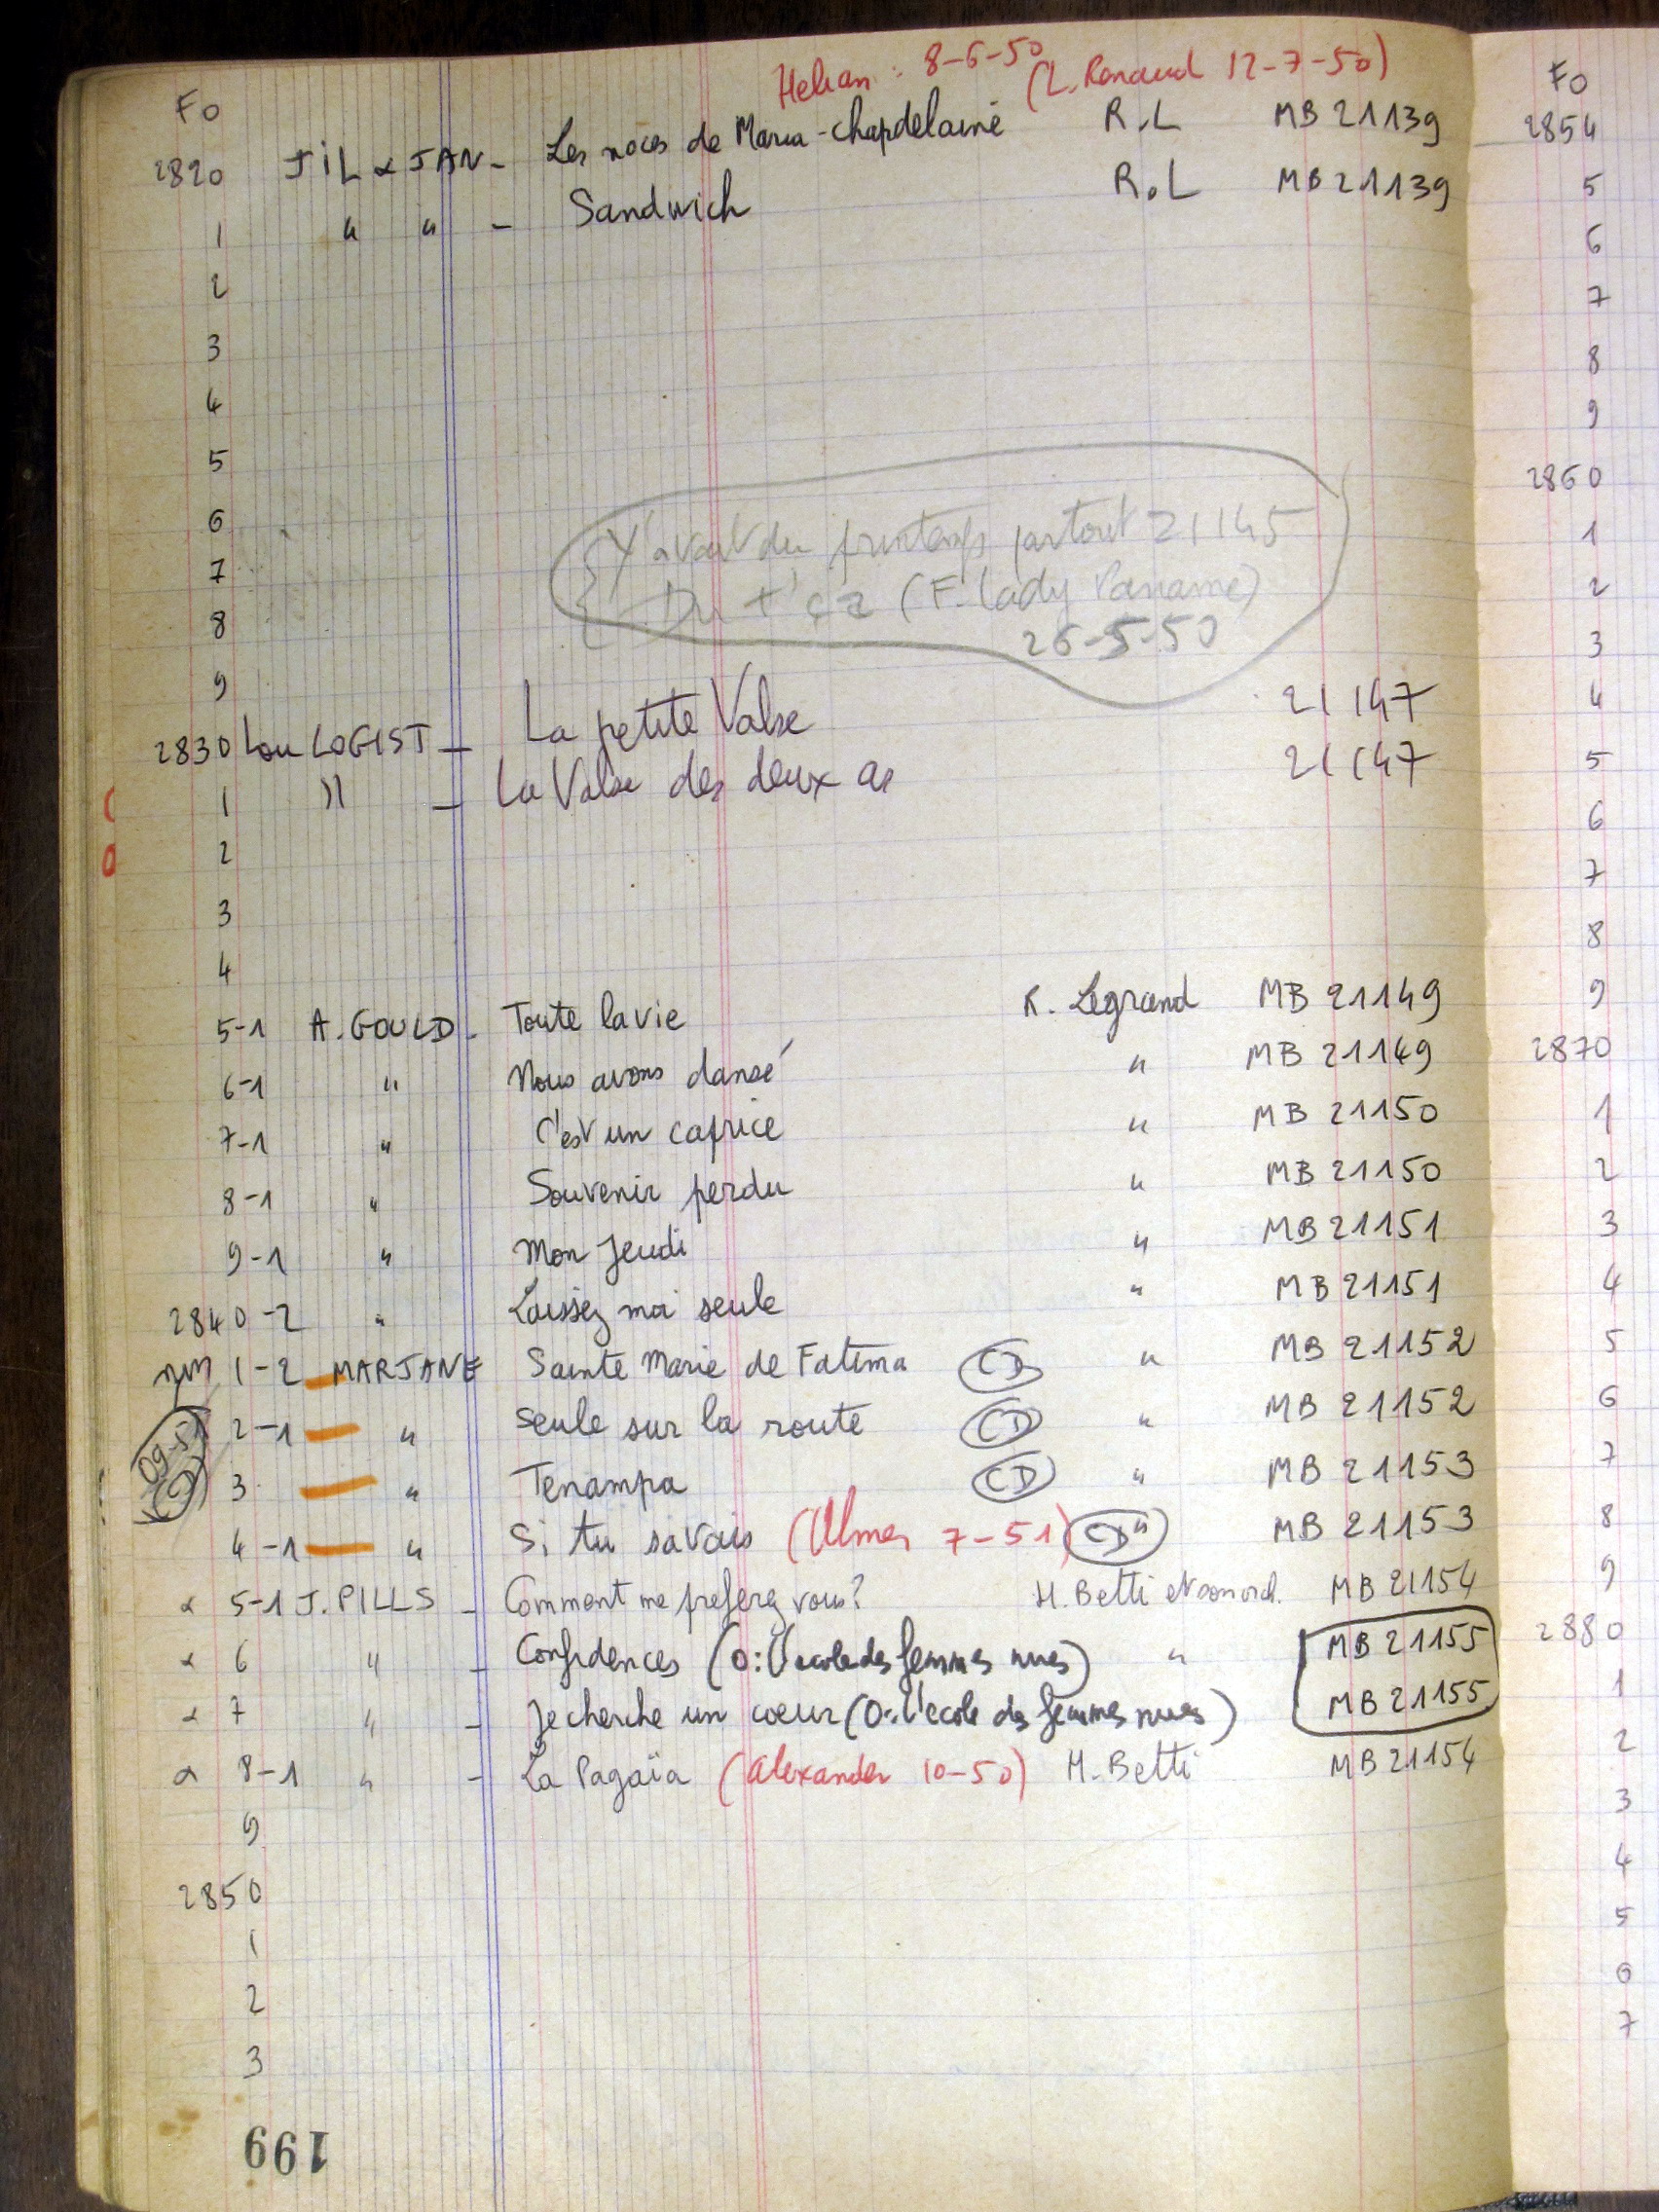 Helian : 8-6-50 (L. Renaud 12-7-50)
Fo
2820 JiL & JAN - Les noces de Maria-Chapdelaine R.L MB 21139
1 " " - Sandwich R.L MB 21139
2
3
4
5
6 Y'avait du printemps partout 21145
7 Du t' ça (F. Lady Paname)
8 26-5-50
9
2830 Lou LOGIST - La petite Valse 21147
1 " - La Valse des deux as 21147
2
3
4
5-1 A. GOULD - Toute la vie R. Legrand MB 21149
6-1 " Nous avons dansé " MB 21149
7-1 " C'est un caprice " MB 21150
8-1 " Souvenir perdu " MB 21150
9-1 " Mon Jeudi " MB 21151
2840-2 " Laissez moi seule " MB 21151
1-2 MARJANE Sainte Marie de Fatima CD " MB 21152
2-1 " Seule sur la route CD " MB 21152
3 " Tenampa CD " MB 21153
4-1 " Si tu savais (Ulmer 7-51) CD " MB 21153
α 5-1 J. PILLS - Comment me preferez vous? H. Betti et son orch. MB 21154
α 6 " - Confidences (O: L'ecole des femmes nues) " MB 21155
α 7 " - Je cherche un coeur (O: L'ecole des femmes nues) MB 21155
α 8-1 " - La Pagaïa (Alexander 10-50) H. Betti MB 21154
9
2850
1
2
3
199
Fo
2854
5
6
7
8
9
2860
1
2
3
4
5
6
7
8
9
2870
1
2
3
4
5
6
7
8
9
2880
1
2
3
4
5
6
7